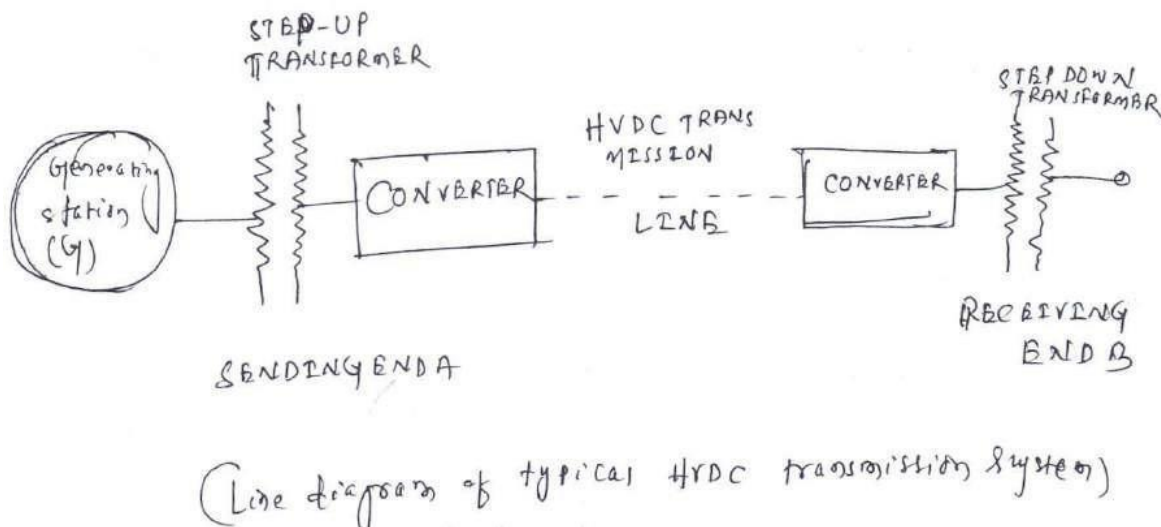 STEP-UP
TRANSFORMER
Generating
station
(G)
CONVERTER
HVDC TRANS
MISSION
LINE
CONVERTER
STEP DOWN
TRANSFORMER
SENDING END A
RECEIVING
END B
(Line diagram of typical HVDC transmission System)